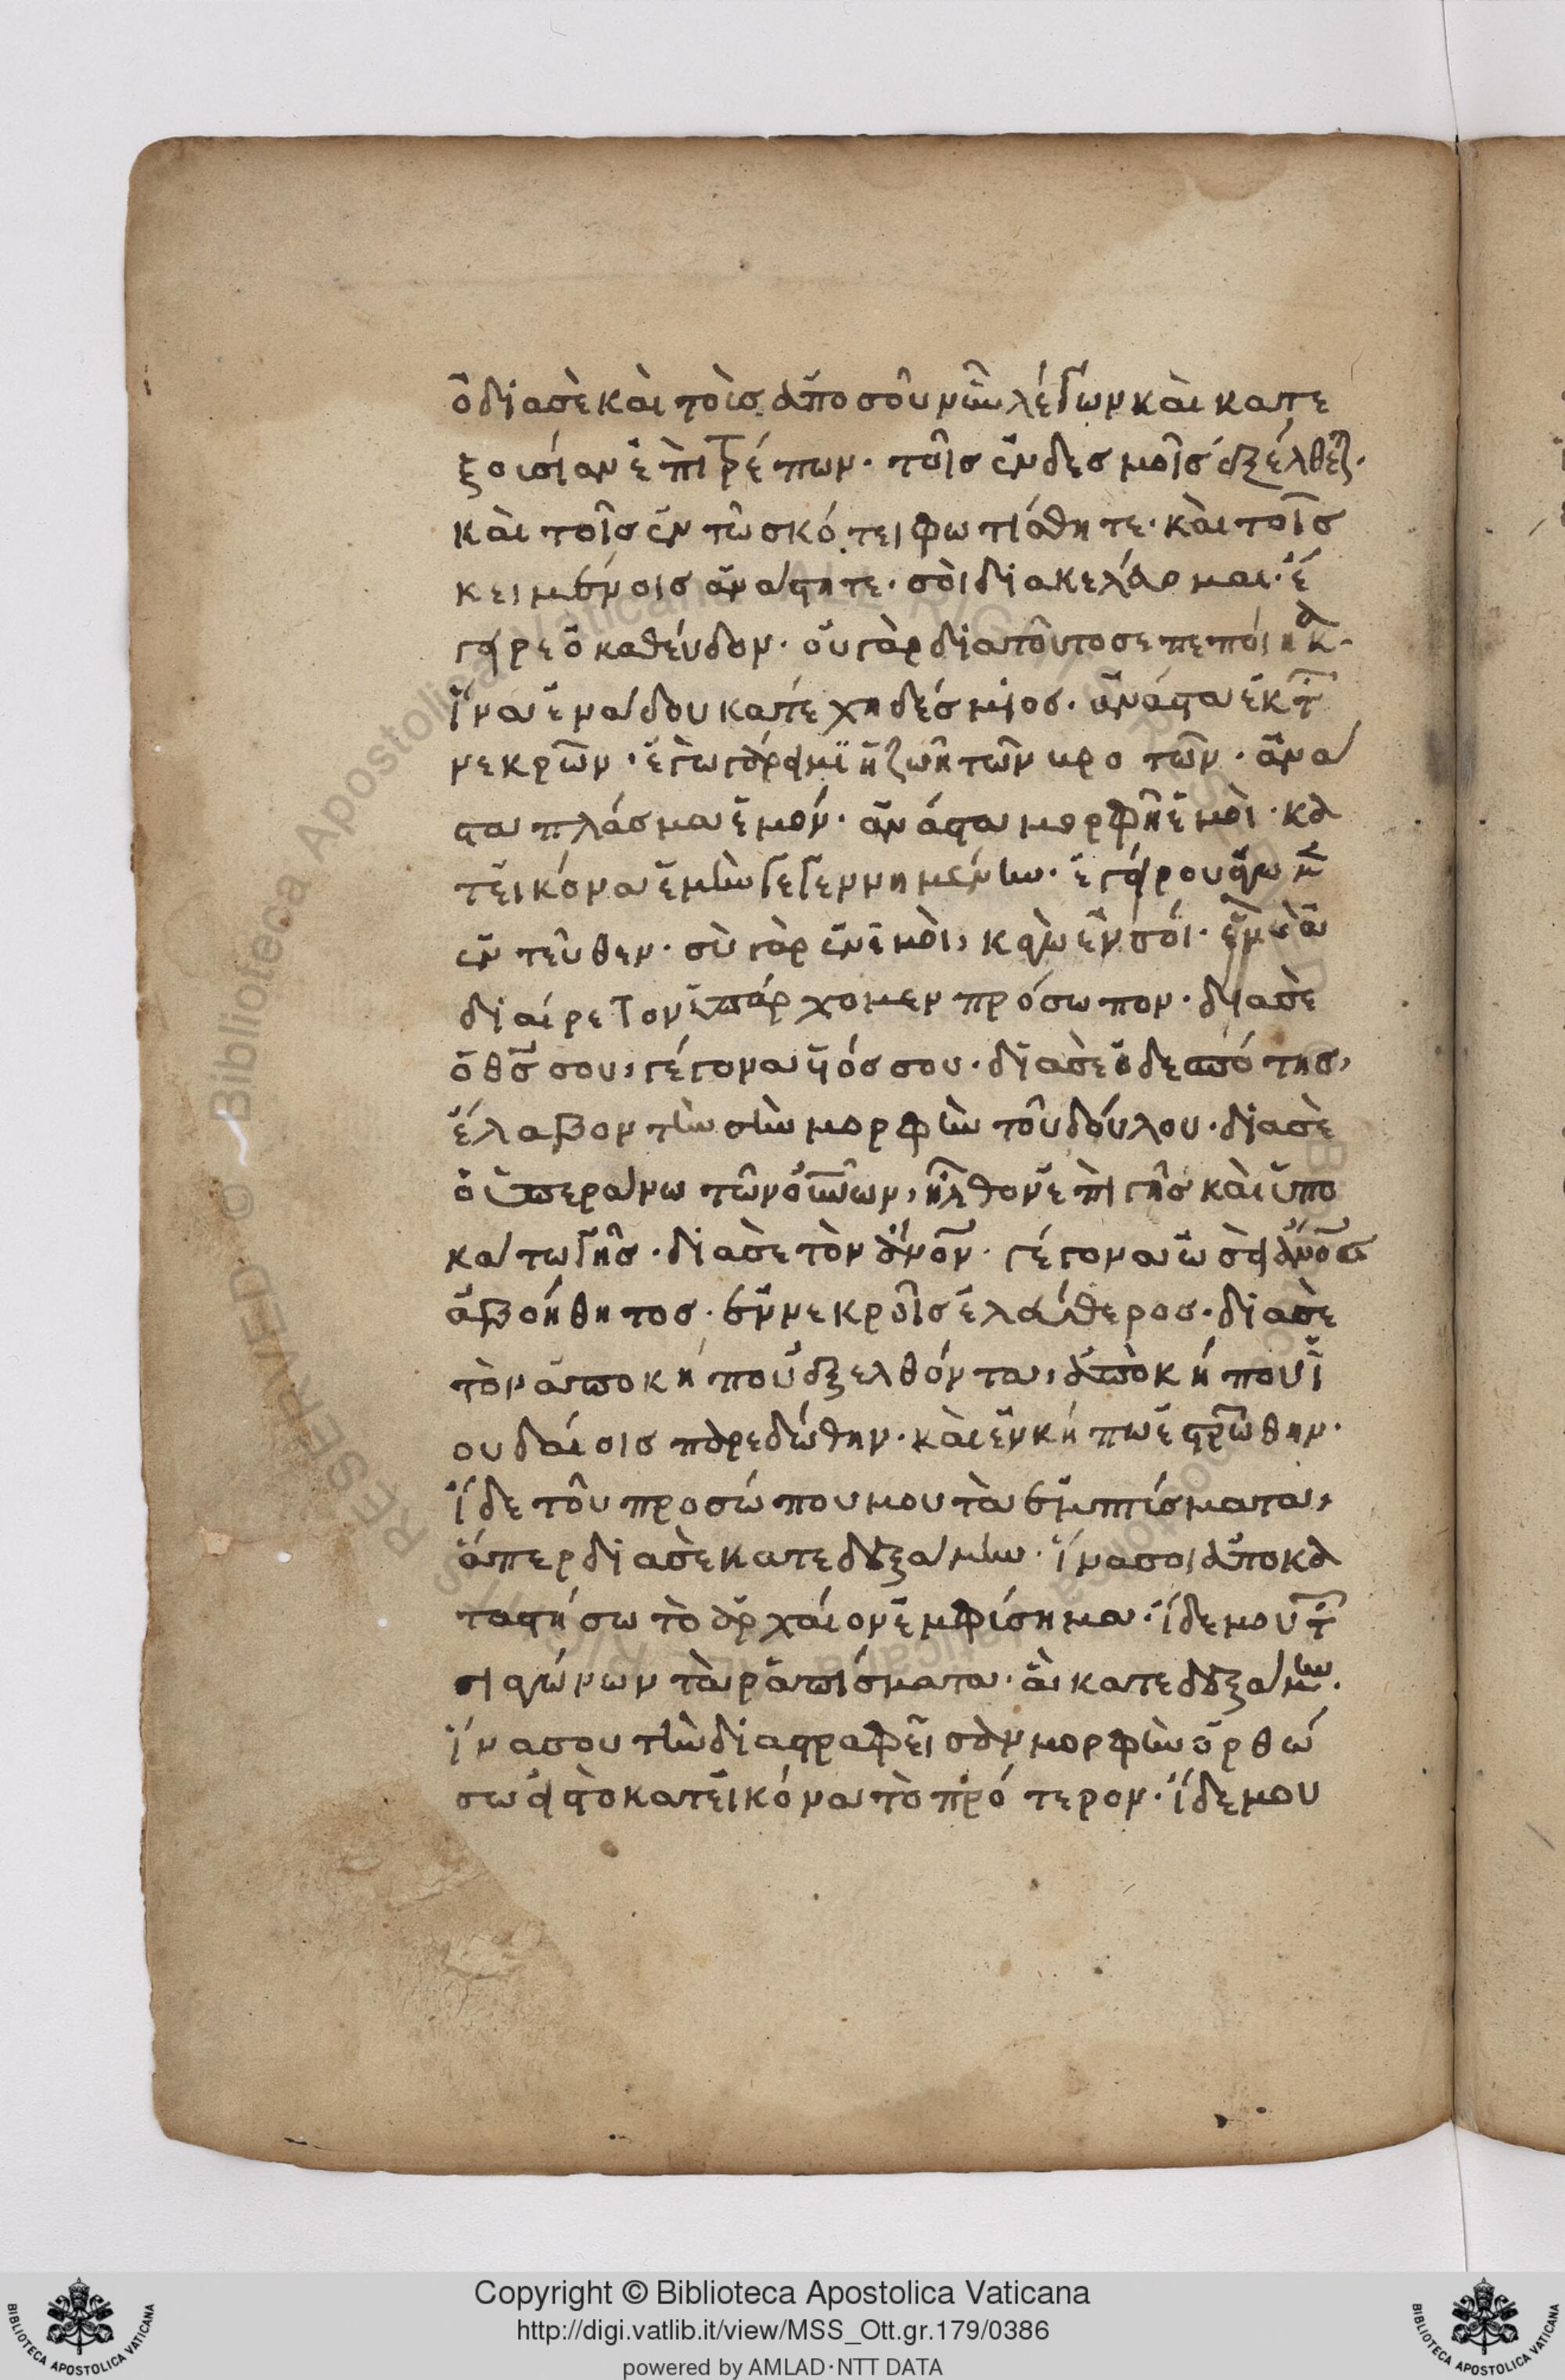 ὁ διὰ σὲ καὶ τοῖς ἀπὸ σοῦ νῦν λέγων καὶ κατε
ξουσίαν ἐπιτρέπων· τοῖς ἐν δεσμοῖς ἐξέλθετε·
καὶ τοῖς ἐν τῶ σκότει φωτίσθητε· καὶ τοῖς
κειμένοις ἀνάστητε· σοὶ διακελεύομαι· ἔ
γειρε ὁ καθεύδον· οὐ γὰρ διατοῦτο σε πεποίηκα·
ἵνα ἐν ἅδου κατέχη δέσμιος· ἀνάστα ἐκ τῶν
νεκρῶν· ἐγὼ γάρ εἰμι ἡ ζωὴ τῶν βροτῶν· ἀνά
στα πλάσμα ἐμόν· ἀνάστα μορφὴ ἐμοὶ· κα
τεικόνα ἐμὴν γεγεννημένην· ἔγειρου ἄγωμεν
ἐντεῦθεν· σὺ γὰρ ἐν ἐμοὶ, καγὼ ἐν σοί· ἓν καὶ ἀ
διαίρετον ὑπάρχομεν πρόσωπον· διὰ σὲ
ὁ θς σου, γέγονα υἱός σου· διὰ σὲ ὁ δεσπότης,
ἔλαβον τὴν σὴν μορφὴν τοῦ δούλου· διὰ σὲ
ὁ ὑπεράνω τῶν οὐνῶν, ἦλθον ἐπὶ γῆς καὶ ὑπο
κάτω γῆς· διὰ σὲ τὸν ἄνον· γέγονα ὡσεὶ ἄνος
ἀβοήθητος· ἐν νεκροῖς ἐλεύθερος· διὰ σὲ
τὸν ἀπο κήπου ἐξελθόντα, ἀπὸ κήπου ἰ
ουδαίοις παρεδόθην· καὶ ἐν κήπω ἐστρώθην·
ἴδε τοῦ προσώπου μου τὰ ἐμπτίσματα,
ἅπερ διὰ σὲ κατεδεξάμην· ἵνα σοι ἀποκα
ταστήσω τὸ ἀρχαίον ἐμφύσημα· ἴδε μου τῶν
σιαγώνων τὰ ραπίσματα· ἃ κατεδεξάμην·
ἵνα σου τὴν διαστραφεῖσαν μορφὴν ὀρθώ
σω εἰς τὸ κατεικόνα τὸ πρότερον· ἴδε μου
Copyright © Biblioteca Apostolica Vaticana
http://digi.vatlib.it/view/MSS_Ott.gr.179/0386
powered by AMLAD·NTT DATA